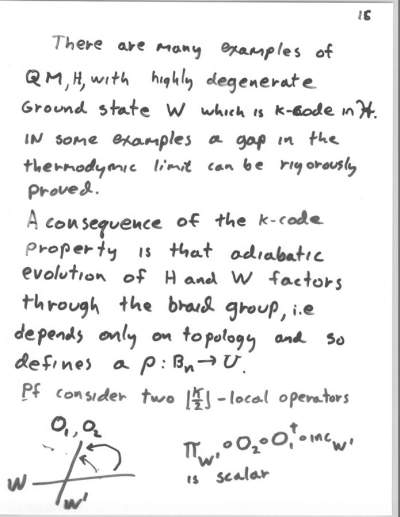 16
There are many examples of
QM, H, with highly degenerate
Ground state W which is k-code in ℋ.
IN some examples a gap in the
thermodymic limit can be rigorously
proved.
A consequence of the k-code
property is that adiabatic
evolution of H and W factors
through the braid group, i.e
depends only on topology and so
defines a ρ: Bₙ → U.
Pf consider two ⌊k/2⌋-local operators
O₁, O₂
π_W' ∘ O₂ ∘ O₁† ∘ inc_W'
is scalar
W
W'